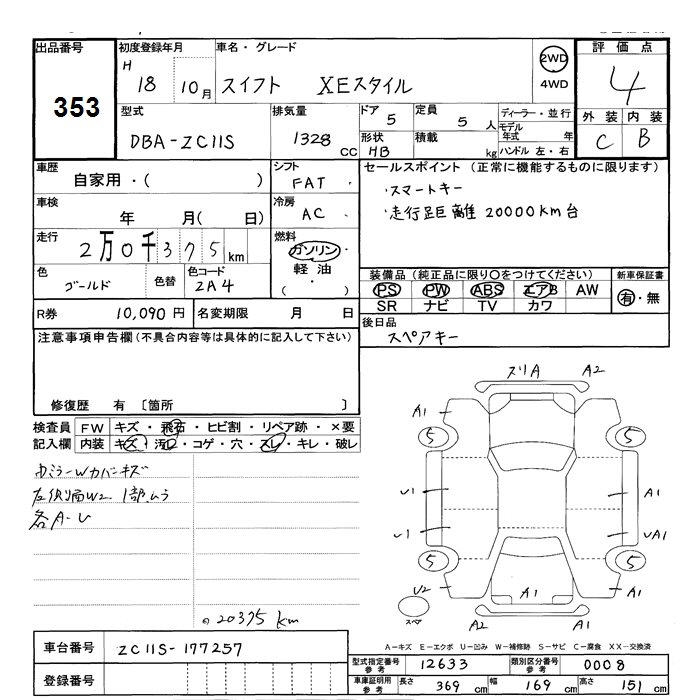 出品番号 初度登録年月 車名・グレード 評価点
353
H 18 10月 スイフト XEスタイル 2WD 4WD 4
型式 排気量 ドア 定員 ディーラー・並行 外装 内装
DBA-ZC11S 1328 CC 5 5 人 モデル年式 年 C B
形状 積載 kg ハンドル 左・右
HB
車歴 シフト セールスポイント (正常に機能するものに限ります)
自家用・( ) FAT ・スマートキー
車検 冷房 ・走行距離 20000km台
年 月( 日) AC
走行 燃料
2万0千375 km ガソリン
軽油
( )
色 色替 色コード
ゴールド 2A4
装備品 (純正品に限り〇をつけてください) 新車保証書
PS PW ABS エアB AW 有・無
SR ナビ TV カワ
R券 10,090円 名変期限 月 日
後日品
スペアキー
注意事項申告欄(不具合内容等は具体的に記入して下さい)
修復歴 有 〔箇所 〕
検査員 FW キズ・飛石・ヒビ割・リペア跡・×要
記入欄 内装 キズ・汚レ・コゲ・穴・スレ・キレ・破レ
カバーキズ
左側面W2 1部ムラ
各A-U
20375 km
スリA A2
A1
5 5
U1 A1
U1 UA1
5 5
U2 A1 A1
スペア
A2 A1
A-キズ E-エクボ U-凹み W-補修跡 S-サビ C-腐食 XX-交換済
車台番号 ZC11S-177257
登録番号
型式指定番号 参考 12633 類別区分番号 参考 0008
車庫証明用 参考 長さ 369 cm 幅 169 cm 高さ 151 cm